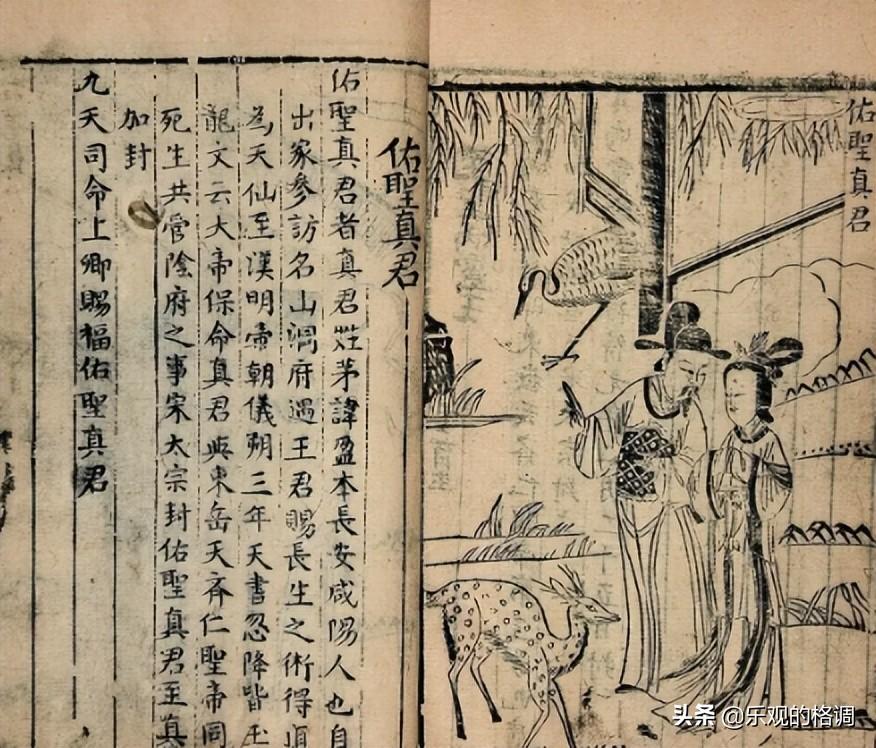 佑聖真君
佑聖真君
佑聖真君者真君姓茅諱盈本長安咸陽人也自
出家參訪名山洞府遇王君賜長生之術得
為天仙至漢明帝朝儀朔三年天書忽降皆玉
龍文云大帝保命真君與東岳天齊仁聖帝同
死生共管陰府之事宋太宗封佑聖真君至真
加封
九天司命上卿賜福佑聖真君
头条 @乐观的格调